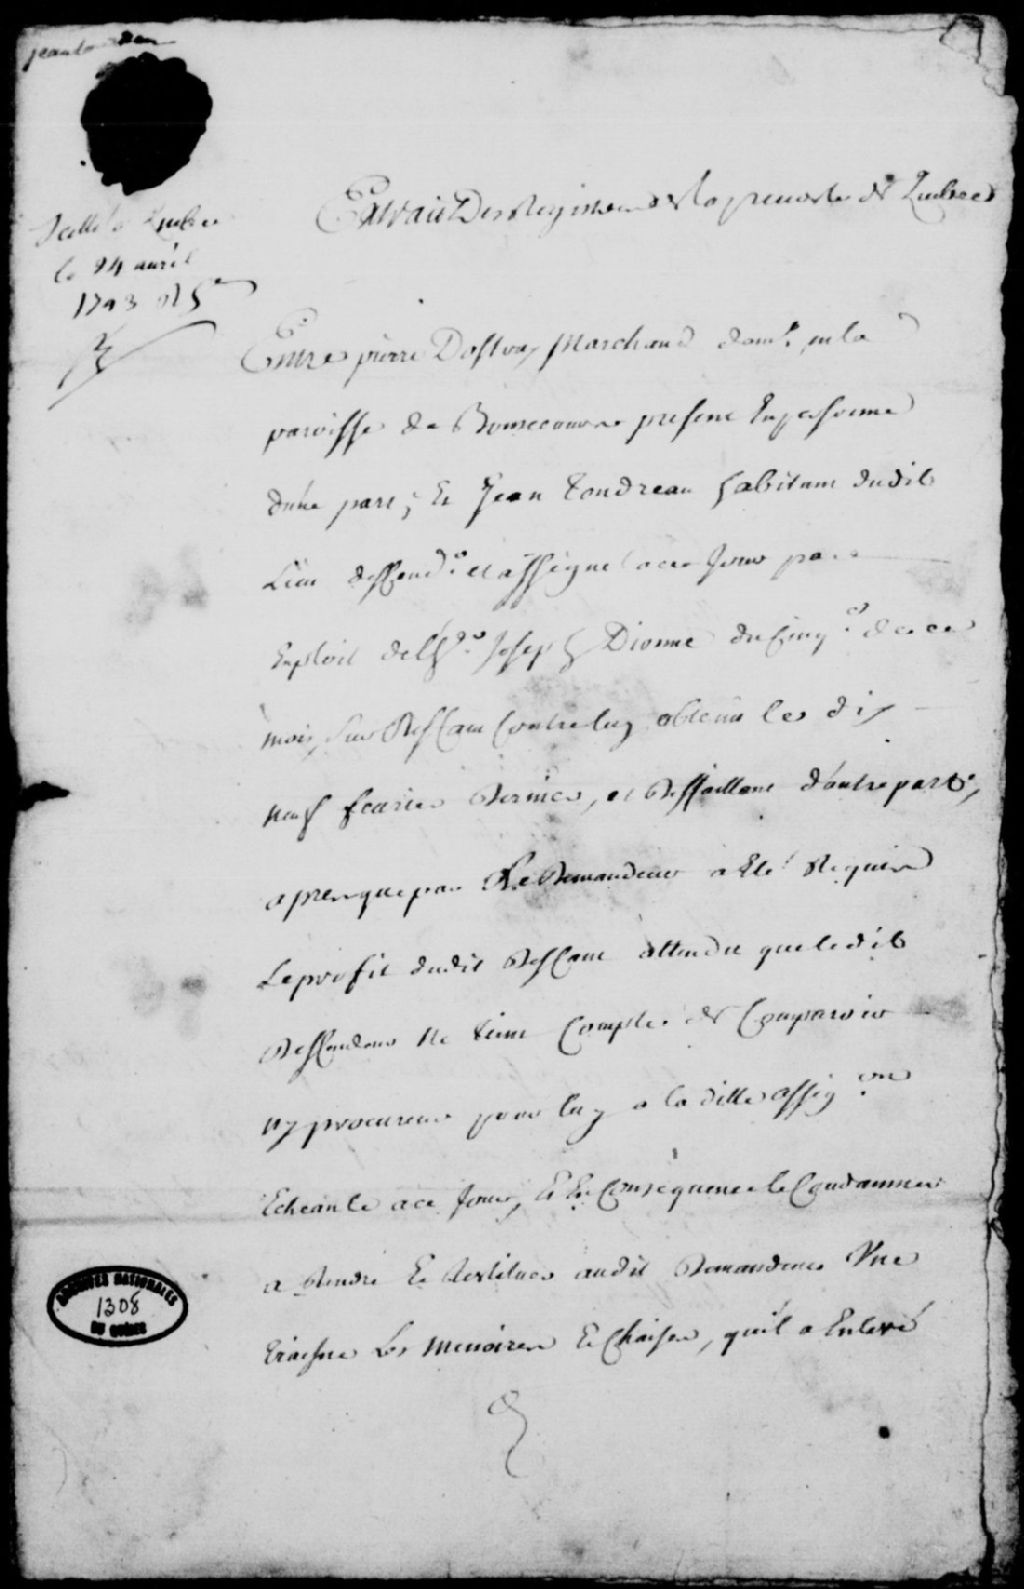 Scellé a Quebec
le 24 auril
1743 R 5s
Extrait Des Registres de la preuosté de Quebec
Entre pierre Dostou Marchand dem.t en la
paroisse de Bonsecours present En personne
d'une part; Et Jean Tondreau habitant dudit
Lieu deffend.r et assigné a ce Jour par
Exploit de l'h.er Joseph Dionne du Cinq.e de ce
mois, sur Deffaut Contre luy obtenu le dix
neuf feurier Dernier, et Deffaillant d'autre part,
apres que par Le Demandeur a Eté Requis
Le profit dudit Deffaut attendu que ledit
Deffendeur Ne tient Compte de Comparoir
ny procureur pour luy a la ditte assig.on
Echeante a ce Jour, Et En Consequence le Condamner
a Rendre Et Restituer audit Demandeur Une
traisne Les menoires Et Chaisne, qu'il a Enlevé
ARCHIVES NATIONALES
1308
DU QUÉBEC